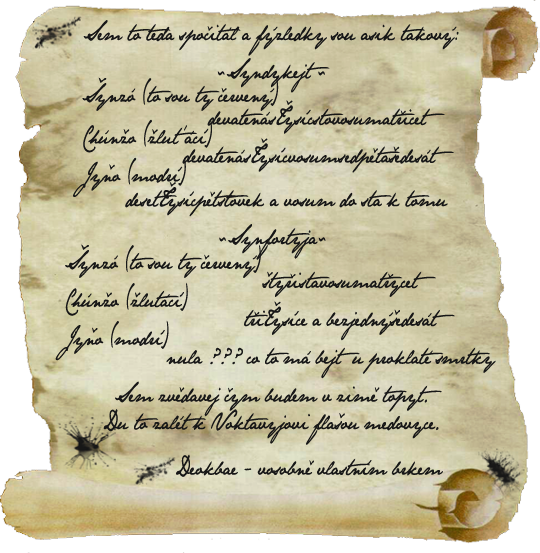 Sem to teda spočital a fýzledky sou asik takový:
~ Syndykejt ~
Šynzó (to sou ty červený)
devatenásťtyšícstovosumatřicet
Chúnžo (žluťácí)
devatenásťtyšícvosumsedpětašedesát
Jyňo (modrí)
desetťtyšícpětstovek a vosum do sta k tomu
~ Synfortyja ~
Šynzó (to sou ty červený)
štyřistavosumatřycet
Chúnžo (žlutácí)
třiťtyšíce a bezjednýšedesát
Jyňo (modrí)
nula .??? co to má bejt u proklate smrtky
Sem zvědavej čym budem v zimě topyt.
Du to zalét k Voktavyjovi flašou medovyce.
Deokbae - vosobně vlastním brkem